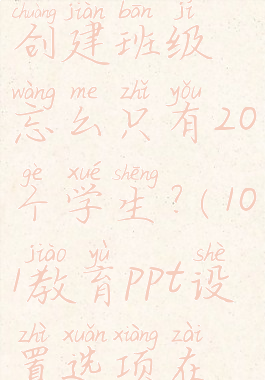 chuàng jiàn bān jí
创建班级
wàng me zhǐ yǒu
忘么只有20
gè xué shēng
个学生?(10
jiào yù shè
1教育ppt设
zhì xuǎn xiàng zài
置选项在